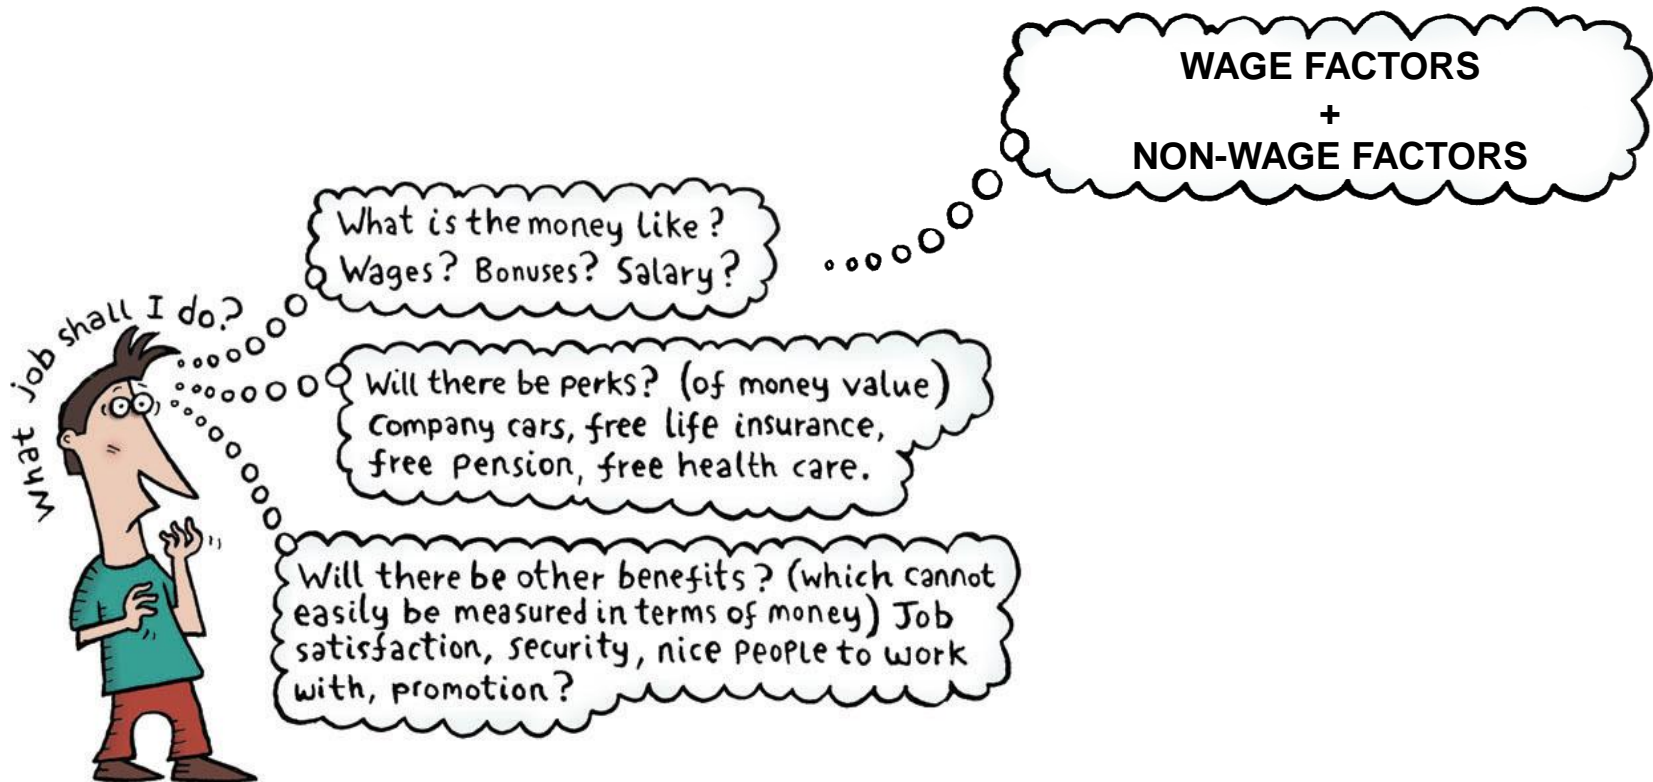 WAGE FACTORS
+
NON-WAGE FACTORS
What job shall I do?
What is the money like?
Wages? Bonuses? Salary?
Will there be perks? (of money value)
Company cars, free life insurance,
free pension, free health care.
Will there be other benefits? (which cannot
easily be measured in terms of money) Job
satisfaction, security, nice people to work
with, promotion?